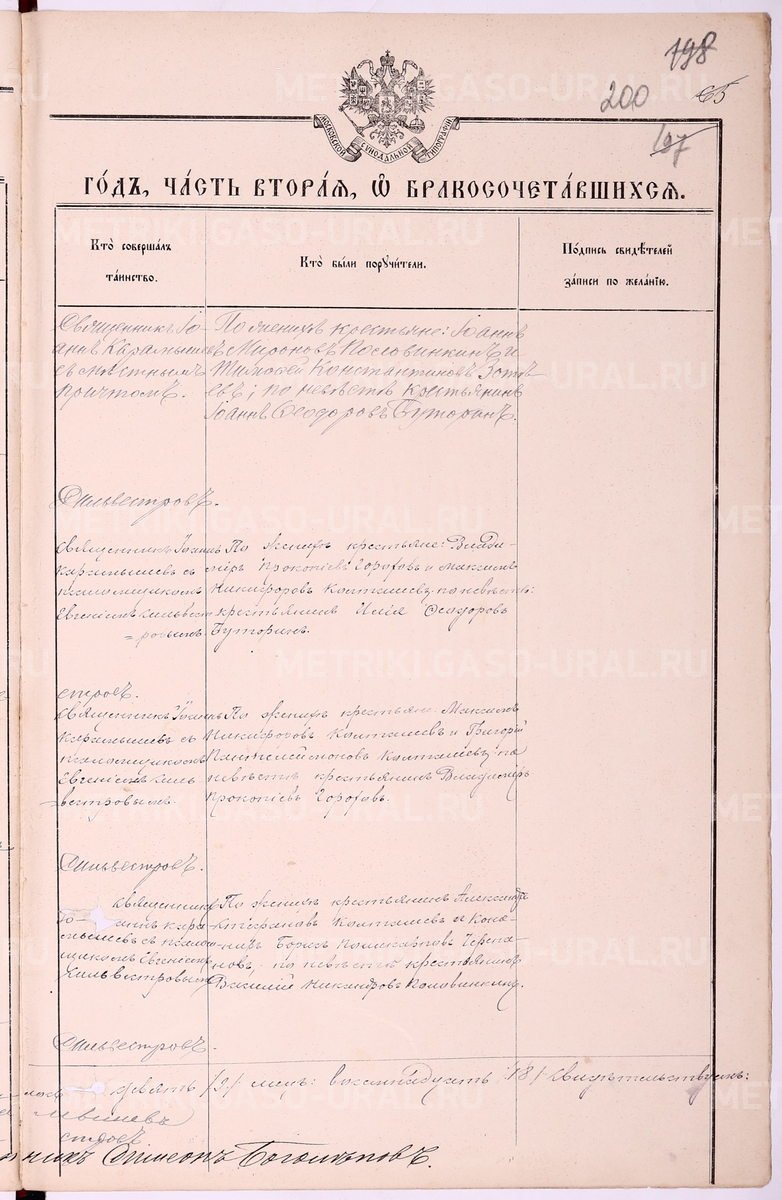 198
200
65
197
МОСКОВСКОЙ СѴНОДАЛЬНОЙ ТИПОГРАФІИ
ГО́ДЪ, ЧА́СТЬ ВТОРА́Я, Ѽ БРАКОСОЧЕТА́ВШИХСЯ.
Кто̀ соверша́лъ
та́инство.
Кто̀ бы́ли порꙋчи́тели.
По́дпись свидѣ́телей
за́писи по жела́нїю.
Священникъ Іо-
аннъ Карамыше
въ съ мѣстнымъ
причтомъ.
По женихѣ крестьяне: Іоаннъ
Мироновъ Пословинкинъ и
Тимофей Константиновъ Зотѣ
евъ; по невѣстѣ крестьянинъ
Іоаннъ Ѳеодоровъ Буторинъ.
Сильвестровъ.
Священникъ Іоаннъ
Карамышевъ съ
псаломщикомъ
Евгеніемъ Сильвест
=ровымъ.
По женихѣ крестьяне: Влади-
міръ Прокопіевъ Гороховъ и Максимъ
Никифоровъ Колташевъ; по невѣстѣ:
крестьянинъ Илія Ѳеодоровъ
Буторинъ.
стровъ.
Священникъ Іоаннъ
Карамышевъ съ
псаломщикомъ
Евгеніемъ Силь-
вестровымъ.
По женихѣ крестьяне: Максимъ
Никифоровъ Колташевъ и Григорій
Пантелеймоновъ Колташевъ; по
невѣстѣ крестьянинъ Владиміръ
Прокопіевъ Гороховъ.
Сильвестровъ.
Священникъ
Іо- аннъ Кара-
мышевъ съ псалом-
щикомъ Евгеніемъ
Сильвестровымъ
По женихѣ крестьянинъ Александръ
Колташевъ и
Борисъ Поликарповъ Черепа-
новъ, по невѣстѣ крестьянинъ
Василій Никандровъ
Сильвестровъ.
девять /9/ жен: восемнадцать /18/ свидѣтельствуемъ:
стровъ
Симеонъ
METRIKI.GASO-URAL.RU